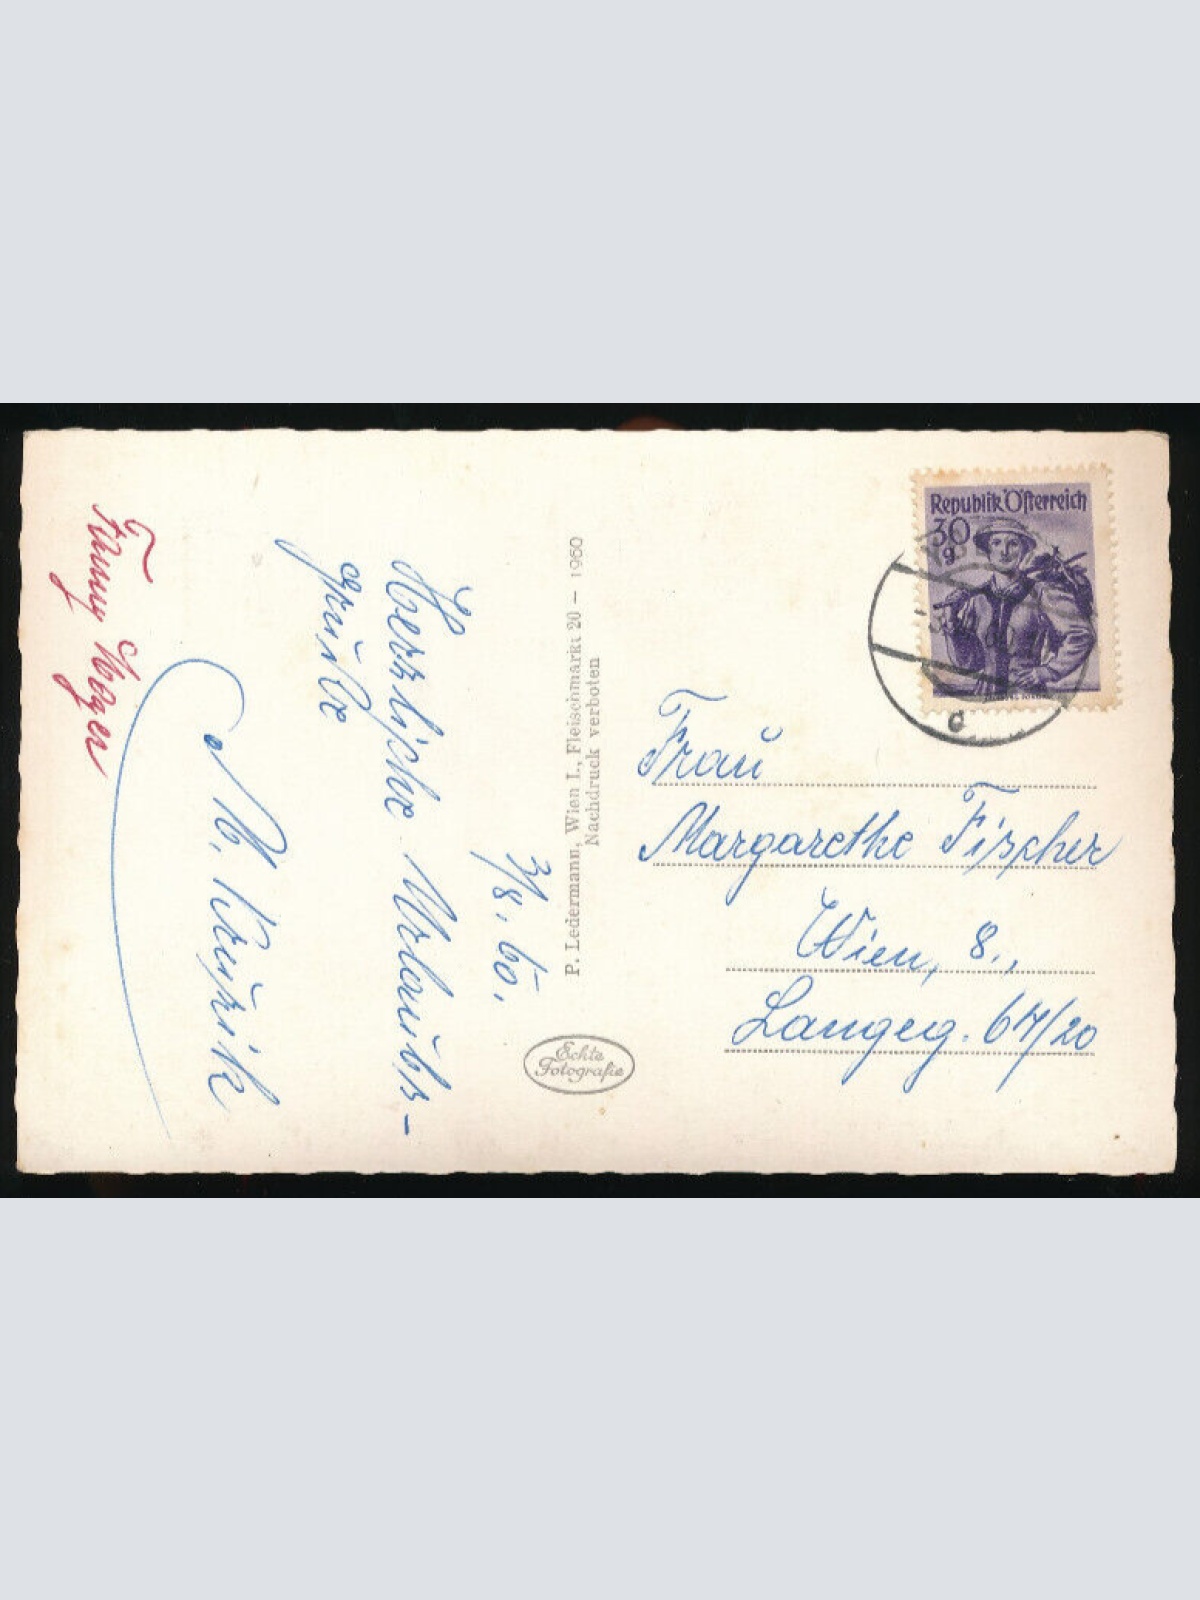 3/8. 60.
Herzliche Urlaubs-
grüße
Fanny
Republik Österreich
30
g
Frau
Margarethe Fischer
Wien, 8.,
Langeg. 64/20
P. Ledermann, Wien I., Fleischmarkt 20 – 1960
Nachdruck verboten
Echte
Fotografie